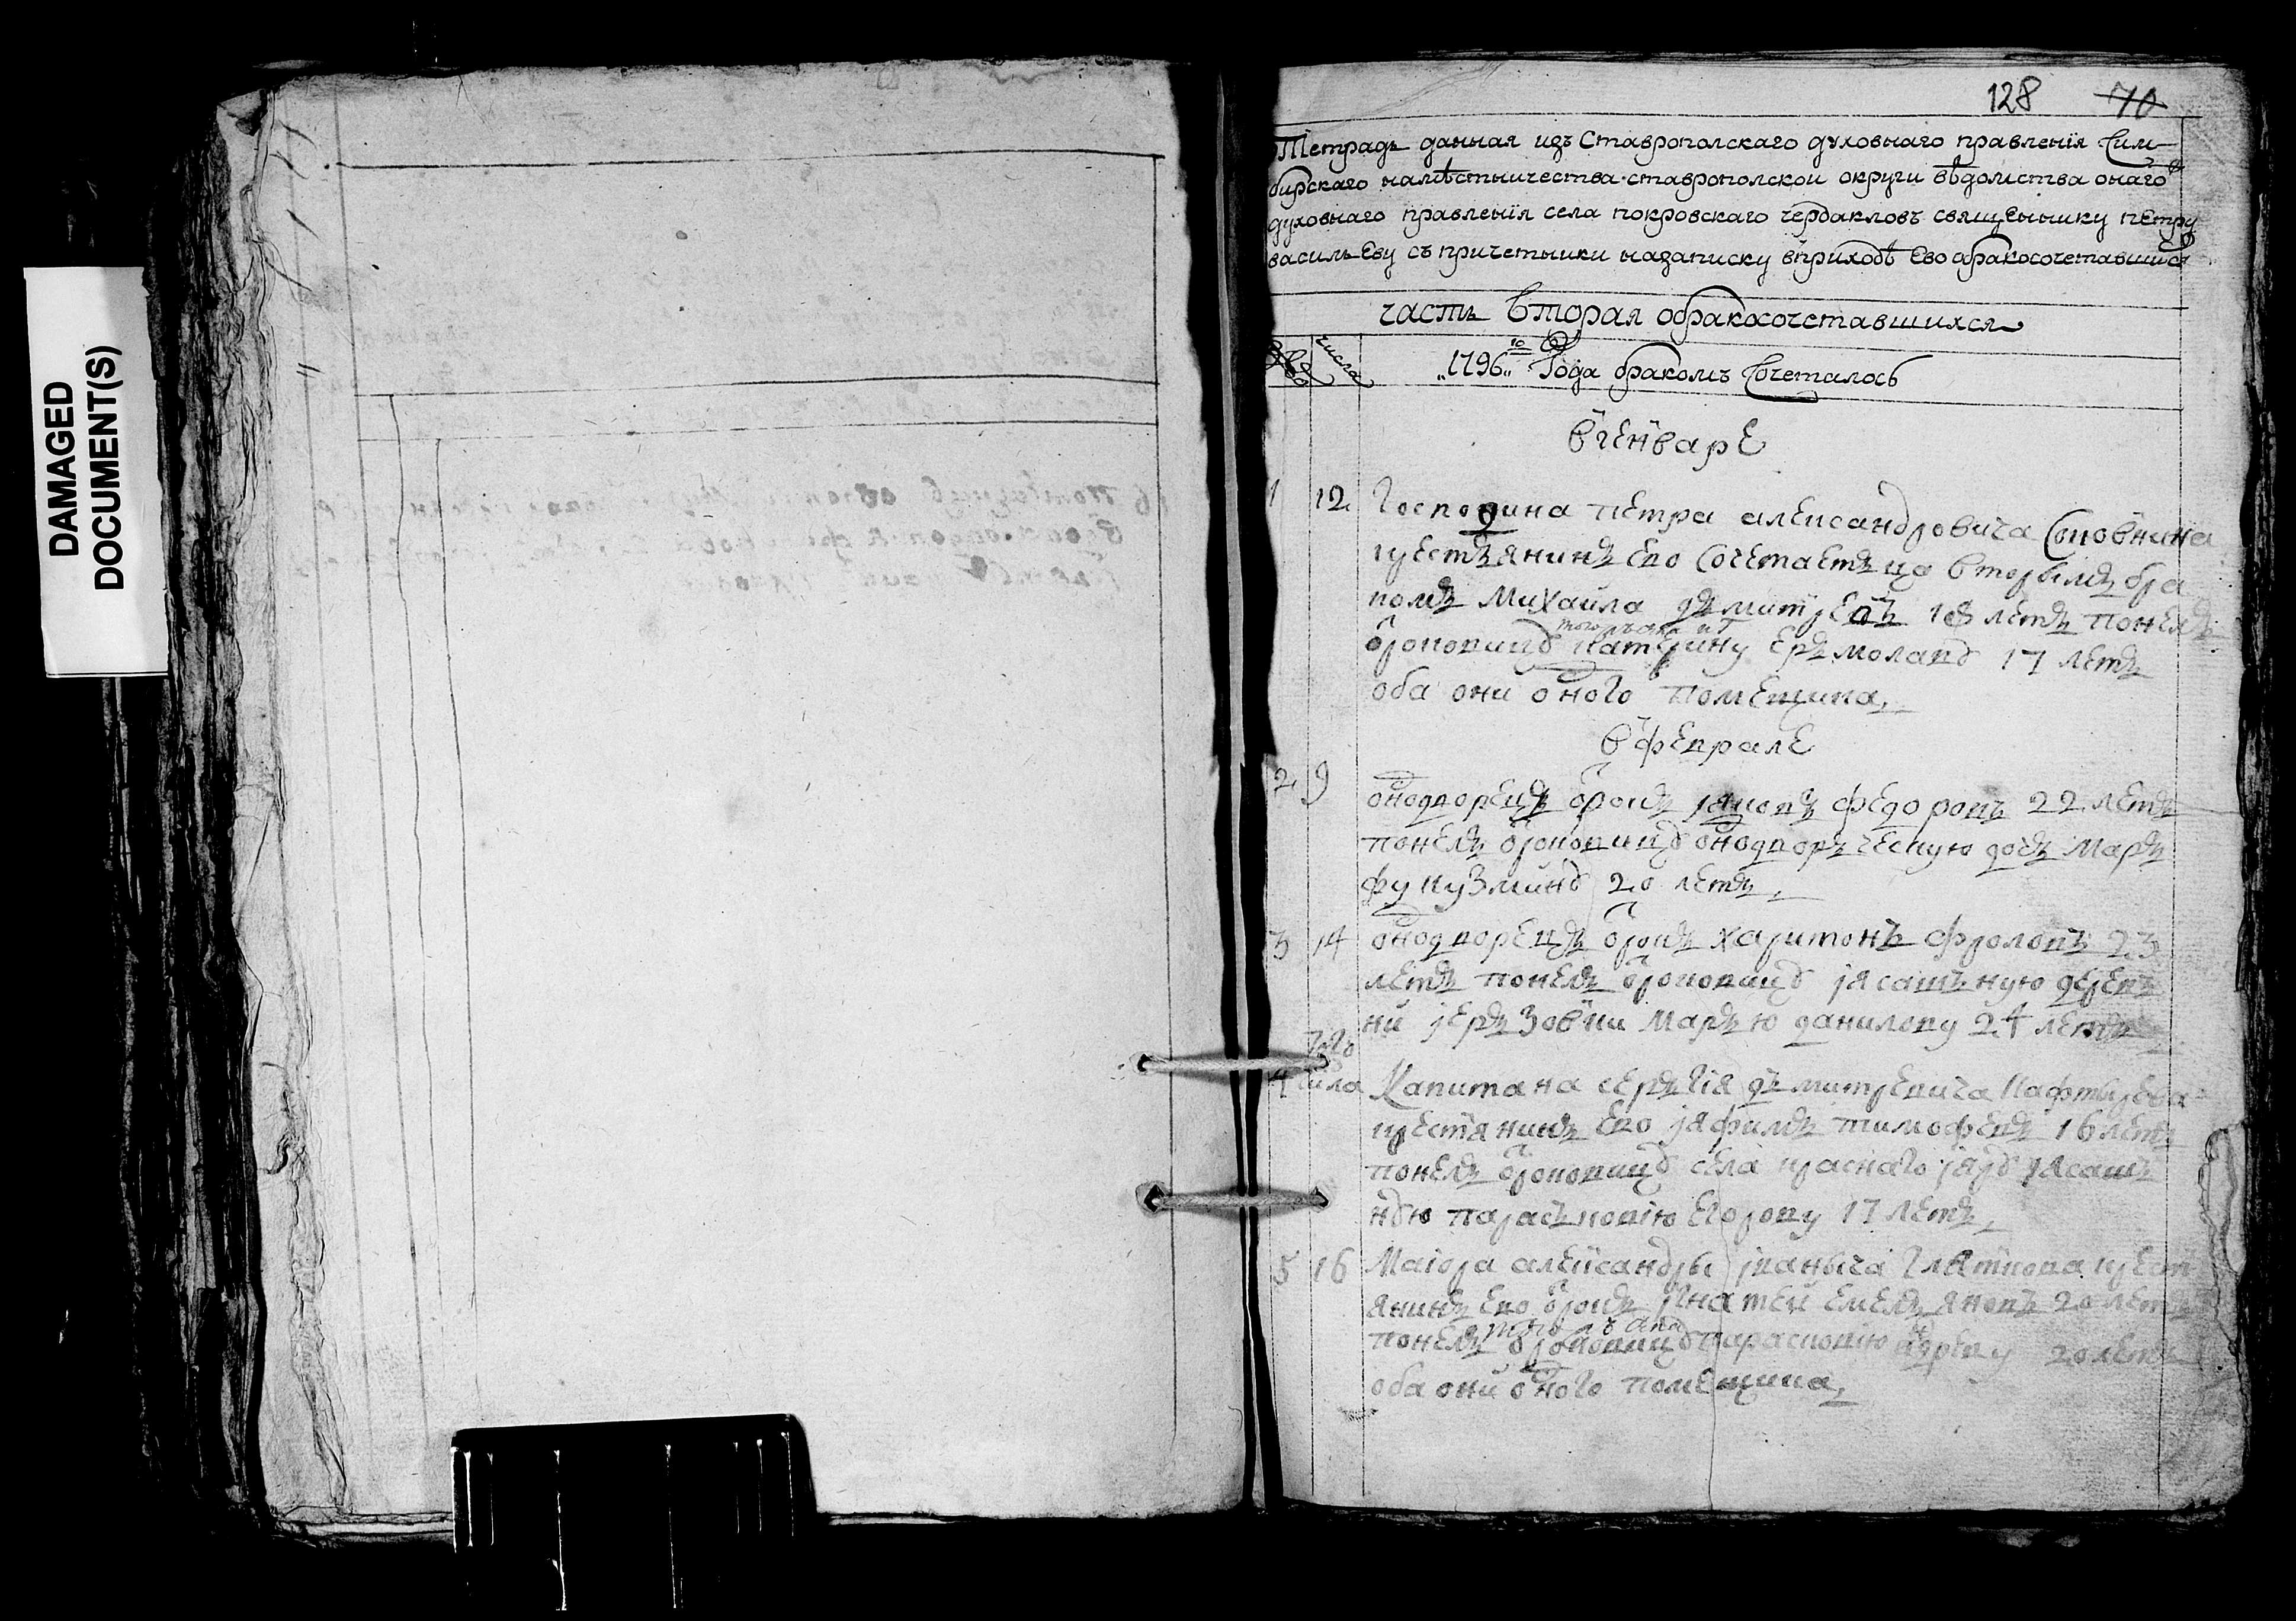 DAMAGED
DOCUMENT(S)
128 70
Тетрадь данная изъ Ставрополскаго духовнаго правленїя Сим-
бирскаго намѣстничества ставрополской округи вѣдомства онаго
духовнаго правленїя села покровскаго чердакловъ священнику петру
васильеву съ причетники назаписку вприходѣ ево обракосочетавшихся
часть вторая обракосочетавшихся
числа
1796го Года бракомъ Сочеталось
вгенваре
1 12 Господина петра александровича
крестьянинъ ево Сочетаетца вторымъ бра
комъ михаила дьмитревъ 18 летъ понелъ
отроковицу катерину ерьмолаву 17 летъ
оба они одного помещика
вфеврале
2 9 однодворецъ отрокъ яковъ федоровъ 22 летъ
понелъ отроковицу однодворческую дочь марь
фу кузмину 20 летъ
3 14 однодворецъ отрокъ харитонъ фроловъ 23
летъ понелъ отроковицу ясашъную деревь
ни марью данилову 24 летъ
4 того числа Капитана серьгїя дьмитревича
крестянинъ ево яфимъ тимофевъ 16 летъ
понелъ отроковицу села краснаго яру ясашъ
ную параськовїю егорову 17 летъ
5 16 Маїора александры иваныча крест
янинъ ево отрокъ игнатей емельяновъ 20 летъ
понелъ отроковицу парасковию 20 летъ
оба они одного помещика